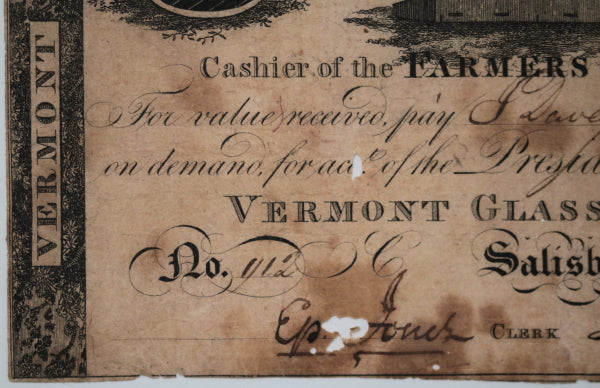 VERMONT
Cashier of the FARMERS
For value received, pay J Dave
on demand, for acct. of the Presid
VERMONT GLASS
No. 912 C Salisb
Ep. CLERK